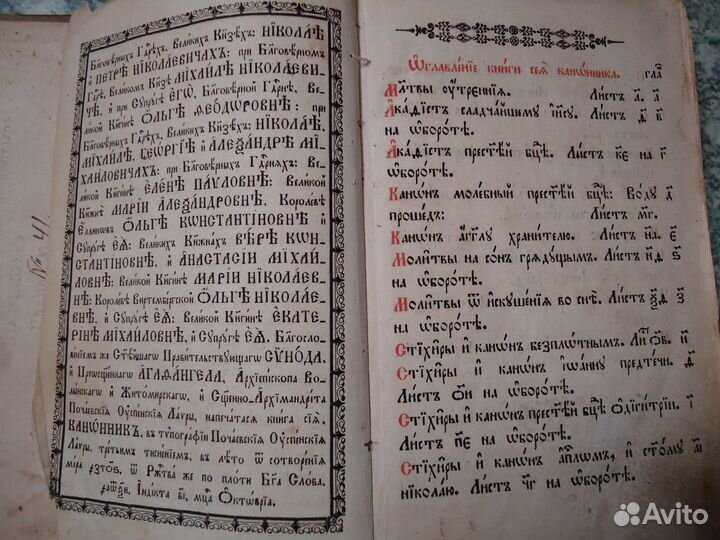 Благовѣрныхъ Гдрѣхъ, Великихъ Кнѕѣхъ: НІКОЛАѢ
и ПЕТРѢ НІКОЛАЕВИЧАХЪ: при Благовѣрномъ
Гдрѣ, Великомъ Кнѕѣ МІХАИЛѢ НІКОЛАЕВИ-
ЧѢ, и при Супругѣ ЕГѠ, Благовѣрной Гдрнѣ, Ве-
ликой Кнгинѣ ОЛЬГѢ ѲЕОДѠРОВНѢ: при
Благовѣрныхъ Гдрѣхъ, Великихъ Кнѕѣхъ: НІКОЛАѢ,
МІХАИЛѢ, ГЕѠРГІѢ и АЛЕѮАНДРѢ МІ-
ХАИЛОВИЧАХЪ: при Благовѣрныхъ Гдрняхъ: Ве-
ликой Кнгинѣ ЕЛЕНѢ ПАѴЛОВНѢ: Великой
Кнжнѣ МАРІИ АЛЕѮАНДРОВНѢ, Королевѣ
Еллинѡвъ ОЛЬГѢ КѠНСТАНТІНОВНѢ и
Супругѣ ЕѦ: Великихъ Кнжнахъ ВѢРѢ КѠН-
СТАНТІНОВНѢ, и АНАСТАСІИ МІХАИ-
ЛОВНѢ: Великой Кнгинѣ МАРІИ НІКОЛАЕВ-
НѢ: Королевѣ Виртембергской ОЛЬГѢ НІКОЛАЕ-
ВНѢ, и Супругѣ ЕѦ: Великой Кнгинѣ ЕКАТЕ-
РІНѢ МІХАИЛОВНѢ, и Супругѣ ЕѦ, Благосло-
веніемъ же Стѣйшагѡ Правительствующагѡ СѴНОДА,
и Преѡсщеннагѡ АГАѲАНГЕЛА, Архіепископа Во-
лынскагѡ и Житомирскагѡ, и Сщенно-Архімандріта
Почаевскія Оуспенскія Лаѵры, напечатася книга сія,
КАНѠННИКЪ, въ тѵпографіи Почаевскія Оуспенскія
Лаѵры, третьимъ тисненіемъ, въ лѣто ѿ сотворенія
міра ҂зтоѕ, ѿ Ржтва же по плоти Бга Слова,
Індікта ві, мца Октѡврія.
№ 41
Ѡглавленіе книги сеѧ канѡнника. гла
Млтвы оутреннія. Листъ а. а
Акаѳістъ сладчайшему Іису. Листъ д в
на ѡборотѣ.
Акаѳістъ престѣй бцѣ. Листъ ке на г
ѡборотѣ.
Канѡнъ молебный престѣй бцѣ: Воду д
прошедъ: Листъ мг.
Канѡнъ агглу хранителю. Листъ на. е
Молитвы на сонъ грядущымъ. Листъ нд ѕ
на ѡборотѣ.
Молитвы ѿ искушенія во снѣ. Листъ ѯд з
на ѡборотѣ.
Стіхиры и канѡнъ безплотнымъ. Ли ов. и
Стіхиры и канѡнъ іѡанну предтечи. ѳ
Листъ ои на ѡборотѣ.
Стіхиры и канѡнъ престѣй бцѣ ѻдигітріи. і
Листъ пе на ѡборотѣ.
Стіхиры и канѡнъ апломъ, и стому аі
ніколаю. Листъ чг на ѡборотѣ.
Avito